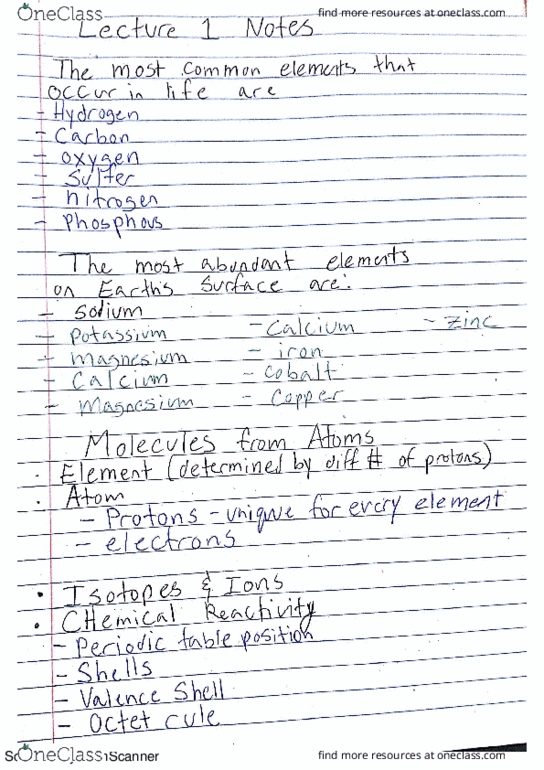 OneClass find more resources at oneclass.com
Lecture 1 Notes
The most common elements that
occur in life are
- Hydrogen
- Carbon
- oxygen
- Sulfer
- nitrogen
- Phosphous
The most abundant elements
on Earth's Surface are:
- Sodium
- Potassium - Calcium - Zinc
- magnesium - iron
- Calcium - Cobalt
- Magnesium - Copper
Molecules from Atoms
· Element (determined by diff # of protons)
· Atom
- Protons - unique for every element
- electrons
• Isotopes & Ions
• CHemical Reactivity
- Periodic table position
- Shells
- Valence Shell
- Octet rule
OneClass Scanner find more resources at oneclass.com